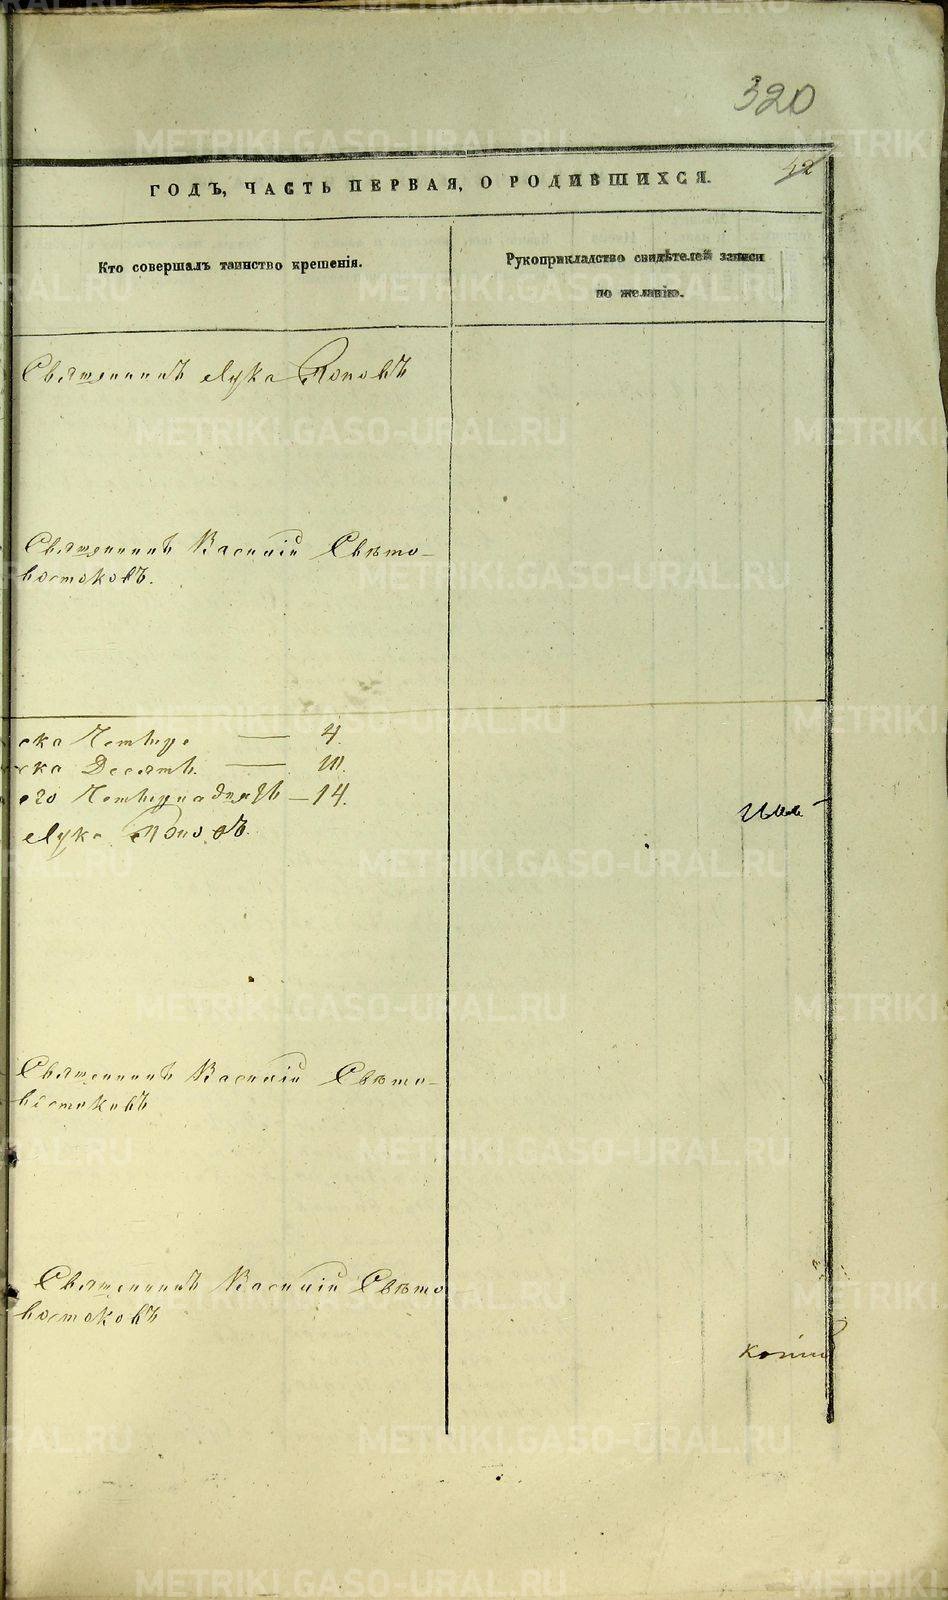 320
42
ГОДЪ, ЧАСТЬ ПЕРВАЯ, О РОДИВШИХСЯ.
Кто совершалъ таинство крещенія.
Рукоприкладство свидѣтелей записи
по желанію.
Священникъ Лука Поповъ
Священникъ Василій Свѣто-
востоковъ.
ска Четыре — 4.
ска Десять. — 10.
его Четырнадцать — 14.
Лука Поповъ.
Священникъ Василій Свѣто-
востоковъ
Священникъ Василій Свѣто
востоковъ
копія
METRIKI.GASO-URAL.RU